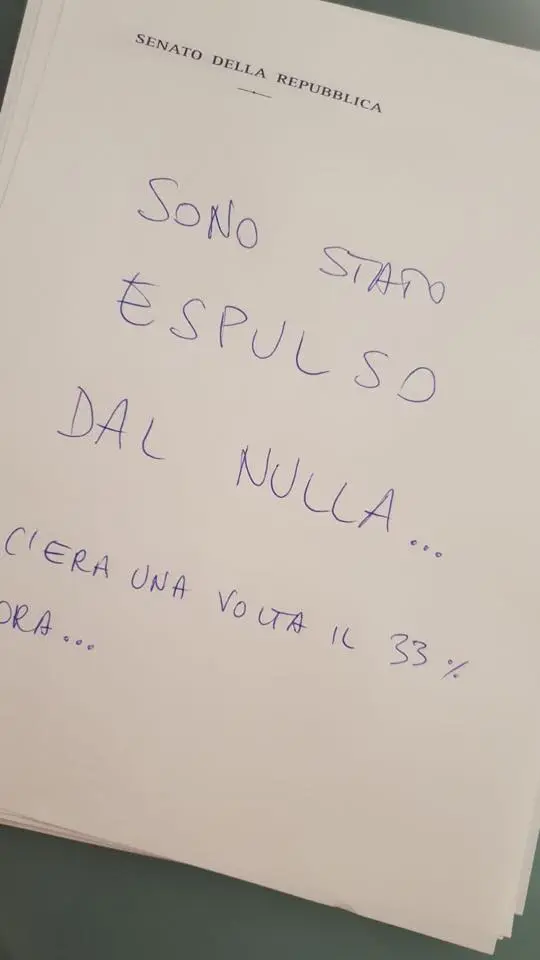 SENATO DELLA REPUBBLICA
SONO STATO
ESPULSO
DAL NULLA...
C'ERA UNA VOLTA IL 33%
ORA...